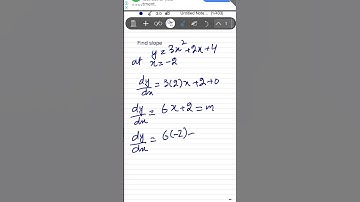 Untitled Note
Find slope
y = 3x² + 2x + 4
at x = -2
dy/dx = 3(2)x + 2 + 0
dy/dx = 6x + 2 = m
dy/dx = 6(-2) -